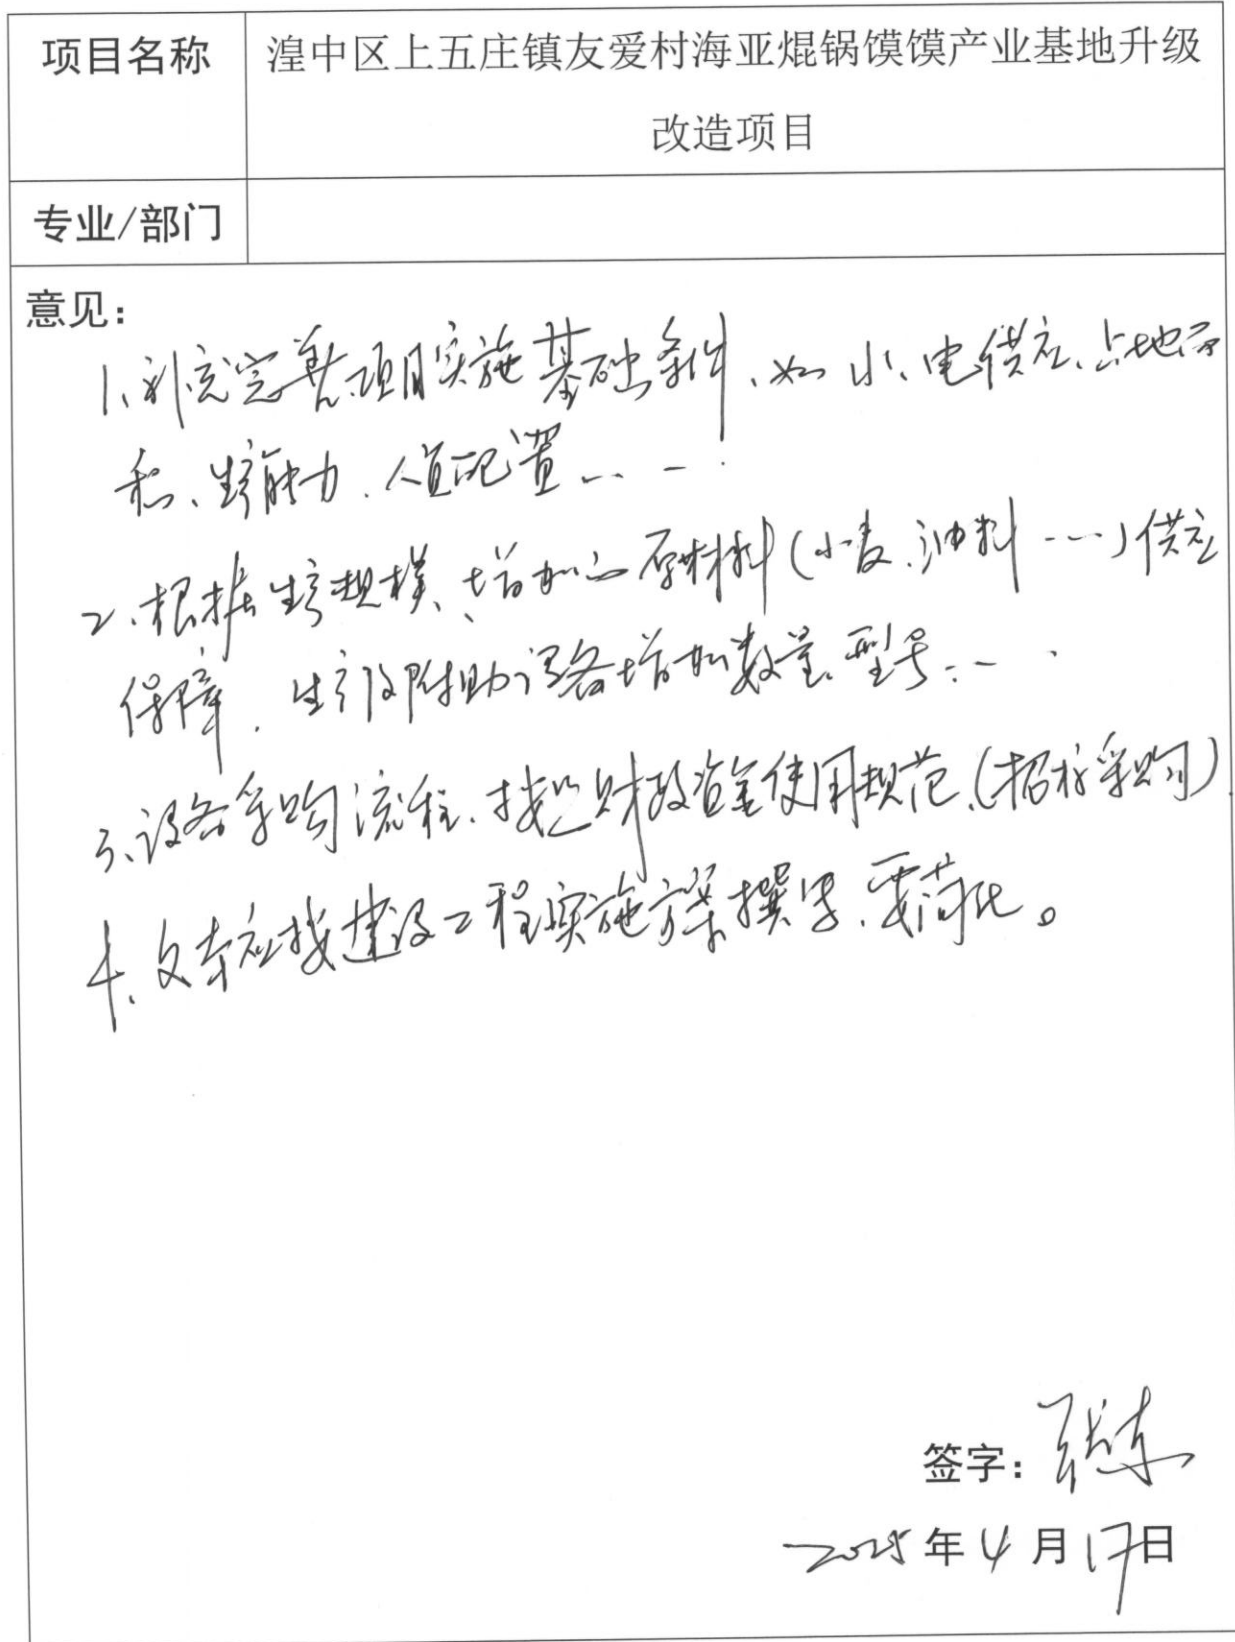 项目名称
湟中区上五庄镇友爱村海亚焜锅馍馍产业基地升级
改造项目
专业/部门
意见：
1、补充完善项目实施基础条件、如水、电供应、占地面
积、生产能力、人员配置……
2、根据生产规模、增加 原材料(小麦、油料……)供应
保障、生产及附助设备增加数量、型号……
3、设备采购流程、按照财政资金使用规范、(招标采购)
4、文本应按建设工程实施方案撰写、要简化。
签字：
2025年4月17日